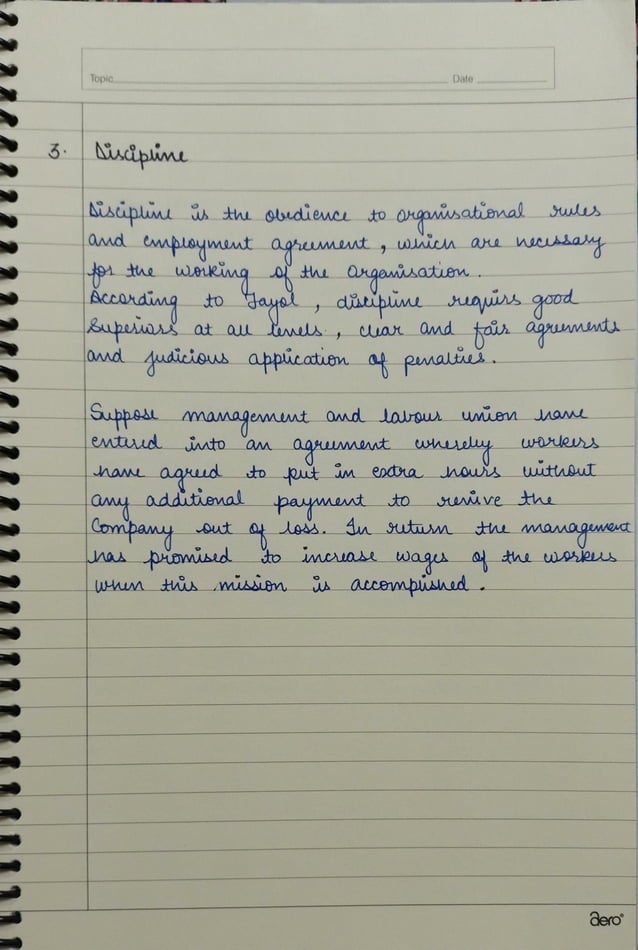 Topic Date
3. Discipline
Discipline is the obedience to organisational rules
and employment agreement, which are necessary
for the working of the organisation.
According to Fayol, discipline requires good
Superiors at all levels, clear and fair agreements
and judicious application of penalties.
Suppose management and labour union have
entered into an agreement whereby workers
have agreed to put in extra hours without
any additional payment to revive the
Company out of loss. In return the management
has promised to increase wages of the workers
when this mission is accomplished.
aero